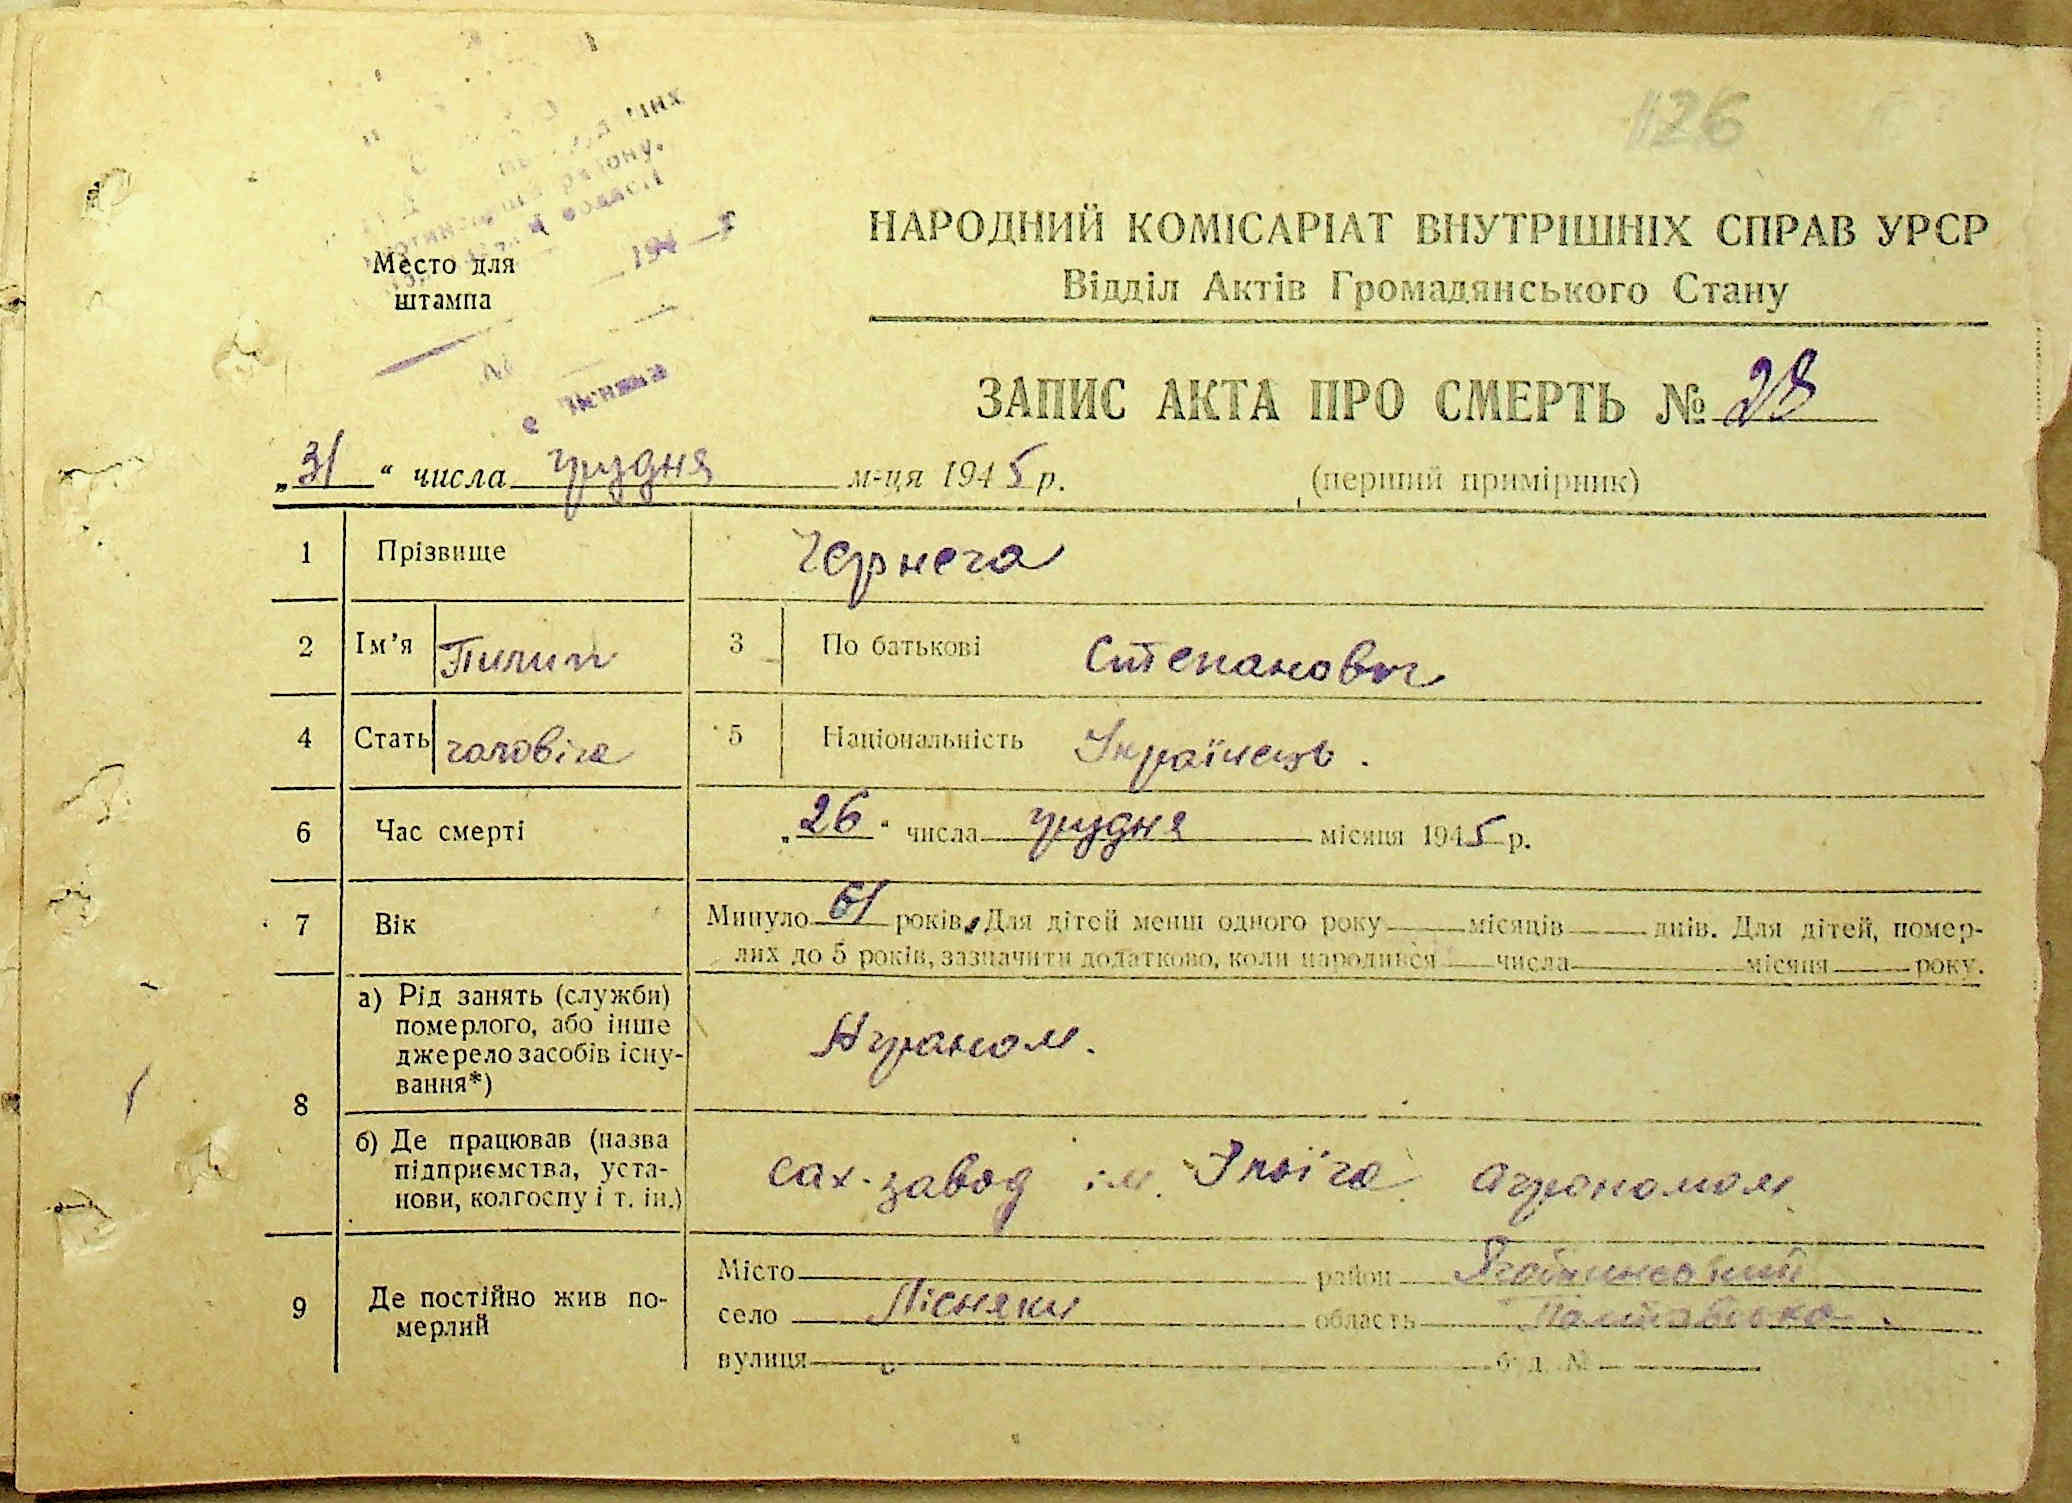 126
району.
області
194
Место для
штампа
№
с Лісняки
НАРОДНИЙ КОМІСАРІАТ ВНУТРІШНІХ СПРАВ УРСР
Відділ Актів Громадянського Стану
ЗАПИС АКТА ПРО СМЕРТЬ № 28
„31“ числа грудня м-ця 1945 р. (перший примірник)
1 Прізвище Чернега
2 Ім’я Пилип 3 По батькові Степанович
4 Стать чоловіча 5 Національність Українець.
6 Час смерті „26“ числа грудня місяця 1945 р.
7 Вік Минуло 61 років. Для дітей менш одного року місяців днів. Для дітей, помер-
лих до 5 років, зазначити додатково, коли народився числа місяця року.
8 а) Рід занять (служби)
померлого, або інше
джерело засобів існу-
вання*)
Аграном.
б) Де працював (назва
підприємства, уста-
нови, колгоспу і т. ін.)
сах. завод ім. Ілліча агрономом
9 Де постійно жив по-
мерлий
Місто район Яготинський
село Лісняки область Полтавська
вулиця буд. №